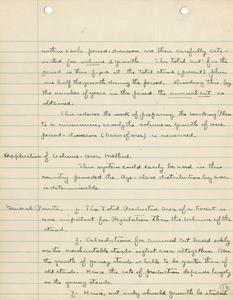 within each period-division are then carefully esti-
mated for volume & growth. The total cut for the
period is then fixed at the total stand (present) plus
one half the growth during the period. Dividing this by
the number of years in the period the annual cut is
obtained.
This reduces the work of preparing the working Plan
to a minimum, as only the volume & growth of one
period-division (basis of area) is measured.
Application of Volume-Area Method.
This system could easily be used in this
country provided the Age-class distribution by area
is determinable.
General Points. 1. The Total Productive Area of a Forest is
more important for Regulation than the Volume of the
stand.
2. Calculations for annual cut based solely
on the merchantable stands neglect area altogether. Also
the growth of young stands is liable to be greater than of
old stands. Hence the calc. of production depends largely
on the young stands.
3. Hence, not only should growth be studied